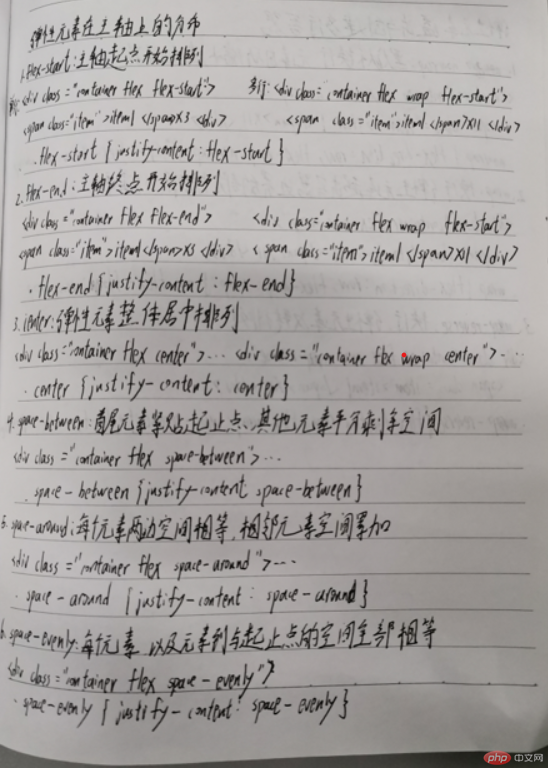 弹性元素在主轴上的分布
1.flex-start:主轴起点开始排列
<div class="container flex flex-start"> 多行:<div class="container flex wrap flex-start">
<span class="item">item1</span>x3 <div> <span class="item">item1</span>x11 </div>
.flex-start {justify-content:flex-start}
2.flex-end:主轴终点开始排列
<div class="container flex flex-end"> <div class="container flex wrap flex-start">
<span class="item">item1</span>x3 </div> <span class="item">item1</span>x11 </div>
.flex-end{justify-content:flex-end}
3.center:弹性元素整体居中排列
<div class="container flex center">... <div class="container flex wrap center">..
.center {justify-content:center}
4.space-between:首尾元素紧贴起止点、其他元素平分剩余空间
<div class="container flex space-between">...
.space-between {justify-content space-between}
5.space-around:每个元素两边空间相等,相邻元素空间累加
<div class="container flex space-around">...
.space-around {justify-content: space-around}
6.space-evenly:每个元素,以及元素到与起止点的空间全部相等
<div class="container flex space-evenly">
.space-evenly {justify-content: space-evenly}
php 中文网